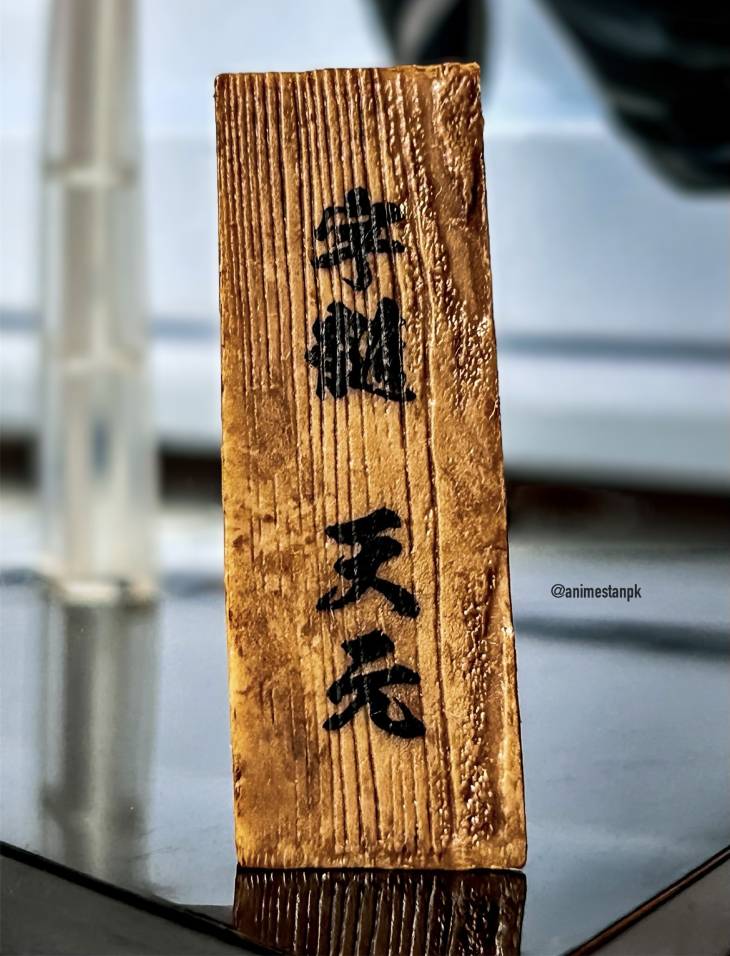 宇髄
天元
@animestanpk